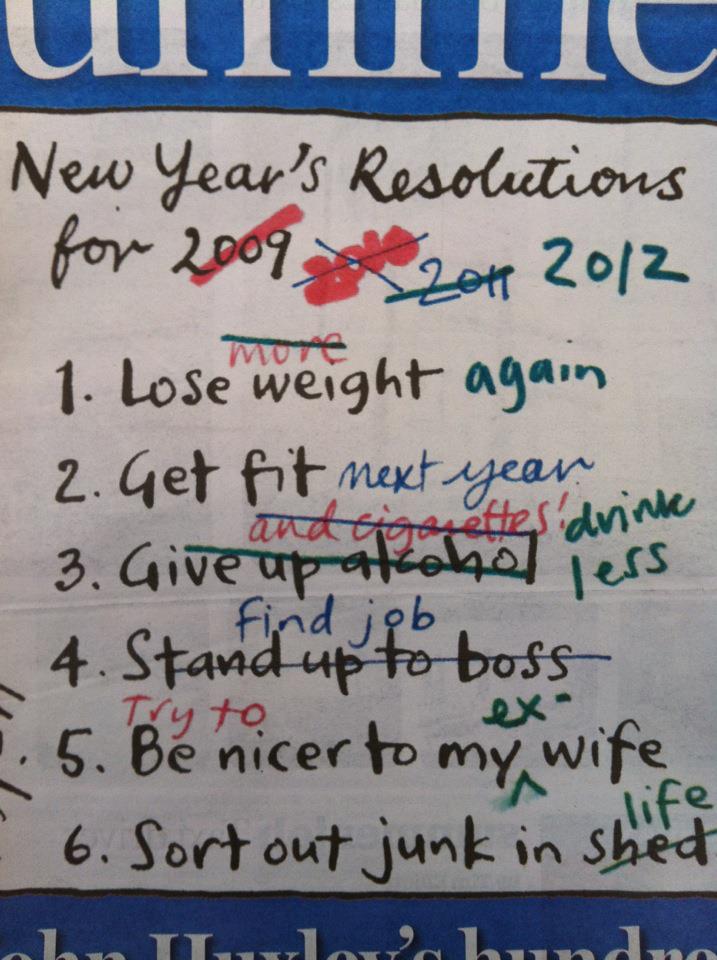 New Year's Resolutions
for 2009 2010 2011 2012
more
1. Lose weight again
2. Get fit next year
and cigarettes! drink
3. Give up alcohol less
find job
4. Stand up to boss
Try to ex-
5. Be nicer to my wife
life
6. Sort out junk in shed
Huxley's